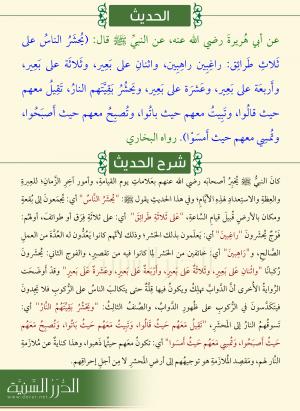 الحديث
عن أبي هُريرةَ رضي الله عنه، عن النبيِّ ﷺ قال: (يُحشَرُ الناسُ على
ثلاثِ طَرائِقَ: راغِبينَ راهِبينَ، واثنانِ على بَعيرٍ، وثلاثةٌ على بَعيرٍ،
وأربعةٌ على بَعيرٍ، وعَشَرةٌ على بَعيرٍ، ويَحشُرُ بَقِيَّتَهم النارُ، تَقِيلُ معهم
حيث قالُوا، وتَبِيتُ معهم حيث باتُوا، وتُصبِحُ معهم حيث أَصبَحُوا،
وتُمسِي معهم حيث أَمسَوْا). رواه البخاري
شرح الحديث
كانَ النبيُّ ﷺ يُخبِرُ أصحابَه رضي الله عنهم بعَلاماتِ يومِ القيامةِ، وأمورِ آخِرِ الزَّمانِ؛ للعِبرةِ
والعِظةِ والاستعدادِ لهذه الأيَّامِ؛ وفي هذا الحديثِ يقول ﷺ: "يُحْشَرُ النَّاسُ" أي: يُجمَعونَ إلى بُقعةٍ
ومكانٍ بالأرضِ قُبيلَ قيامِ السَّاعةِ، "عَلَى ثَلَاثَةِ طَرَائِقَ" أي: على ثلاثةِ فِرَقٍ أو طوائفَ، أوَّلهم:
فَوجٌ يُحشَرونَ "راغبينَ" أي: يَعلَمون بذلك الحَشرِ؛ وذلك لأنَّهم كانوا يَعُدُّون له العُدَّةَ من العملِ
الصَّالحِ، و"رَاهِبِينَ" أي: خائفين من الحَشرِ لِما كانوا فيه من تقصيرٍ، والفوج الثاني: يُحشَرونَ
رُكبانًا "واثنانِ على بَعيرٍ، وثلاثةٌ على بَعيرٍ، وأربعةٌ على بَعيرٍ، وعشرةٌ على بَعيرٍ" وقد أوضحَتِ
الرِّوايةُ الأُخرى أنَّ الدَّوابَّ تَهلِكُ ويكونُ فيها قِلَّةٌ حتى يَتكالَبَ الناسُ على الرُّكوبِ فلا يَجِدونَ
فيتكدَّسونَ في الرُّكوبِ على ظُهورِ الدَّوابِّ، والصِّنفُ الثالثُ: "ويَحْشُرُ بَقِيَّتَهُمُ النَّارُ" أي:
تَسوقُهم النارُ إلى المَحشَرِ، "تَقِيلُ مَعَهُم حَيثُ قَالُوا، وتَبِيتُ مَعَهُم حَيْثُ بَاتُوا، وتُصْبِحُ مَعَهُم
حَيثُ أَصبَحُوا، وتُمسِي مَعَهُم حَيثُ أَمسَوا" أي: تكونُ معهم حيثُما ذَهبوا، وهذا كنايةٌ عن مُلازَمةِ
النَّارِ لهم، ومَقصِدُ الملازَمةِ هو توجيهُهم إلى أرضِ المَحشَرِ لا مِن أجلِ إحراقِهم.
الدرر السنية
www.dorar.net